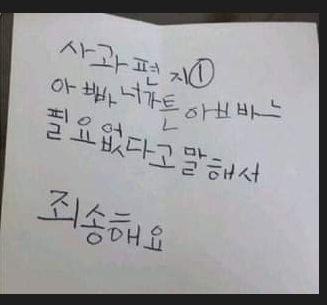 사과편지①
아빠 너가튼 아쁘바는
필요없다고 말해서
죄송해요